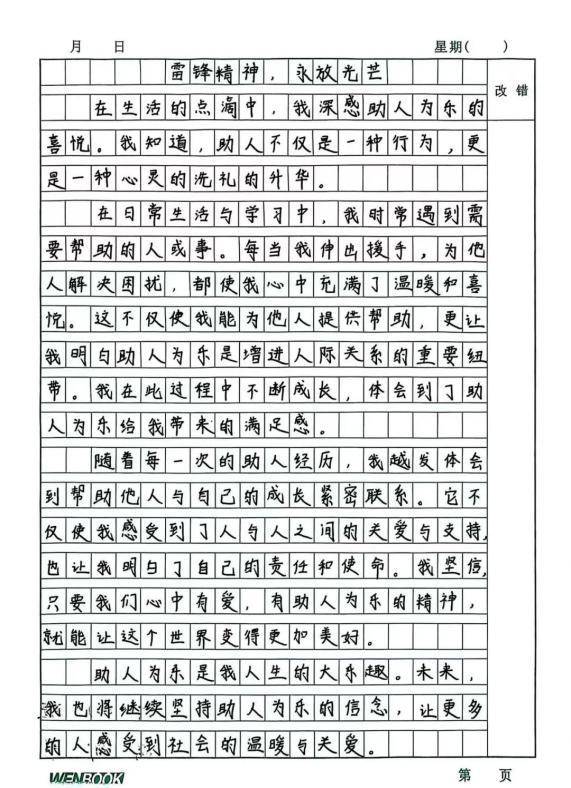 月 日 星期( )
雷锋精神，永放光芒
改 错
在生活的点滴中，我深感助人为乐的
喜悦。我知道，助人不仅是一种行为，更
是一种心灵的洗礼的升华。
在日常生活与学习中，我时常遇到需
要帮助的人或事。每当我伸出援手，为他
人解决困扰，都使我心中充满了温暖和喜
悦。这不仅使我能为他人提供帮助，更让
我明白助人为乐是增进人际关系的重要纽
带。我在此过程中不断成长，体会到了助
人为乐给我带来的满足感。
随着每一次的助人经历，我越发体会
到帮助他人与自己的成长紧密联系。它不
仅使我感受到了人与人之间的关爱与支持，
也让我明白了自己的责任和使命。我坚信，
只要我们心中有爱，有助人为乐的精神，
就能让这个世界变得更加美好。
助人为乐是我人生的大乐趣。未来，
我也将继续坚持助人为乐的信念，让更多
的人感受到社会的温暖与关爱。
WENBOOK 第 页